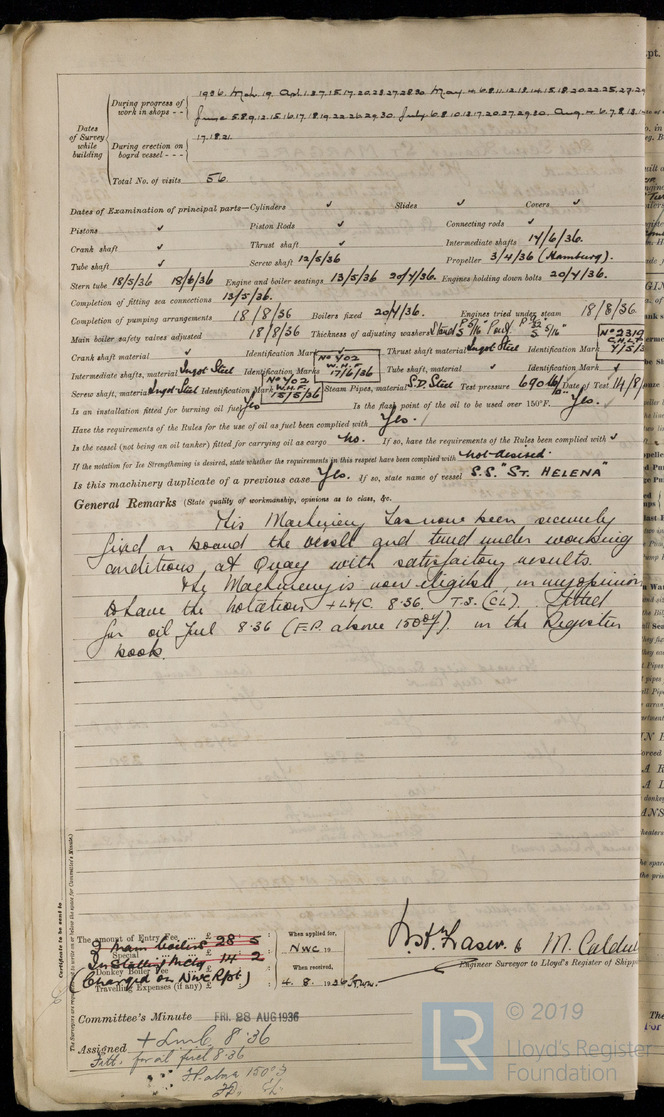 1936. Mch. 19. Apl. 1.3.7.15.17.20.23.27.28.30. May 4.6.8.11.12.13.14.15.18.20.22.25.27.29
During progress of work in shops - -
June 5.8.9.12.15.16.17.18.19.22.26.29.30. July 6.8.10.13.17.20.27.29.30. Aug. 4.6.7.8.13.
Dates of Survey while building
During erection on board vessel - - -
17.18.21.
Total No. of visits 56.
Dates of Examination of principal parts—Cylinders ✓ Slides ✓ Covers ✓
Pistons ✓ Piston Rods ✓ Connecting rods ✓
Crank shaft ✓ Thrust shaft ✓ Intermediate shafts 17/6/36.
Tube shaft ✓ Screw shaft 12/5/36 Propeller 3/4/36 (Hamburg).
Stern tube 18/5/36 18/6/36 Engine and boiler seatings 13/5/36 20/4/36. Engines holding down bolts 20/4/36.
Completion of fitting sea connections 13/5/36.
Completion of pumping arrangements 18/8/36 Boilers fixed 20/4/36. Engines tried under steam 18/8/36
Main boiler safety valves adjusted 18/8/36 Thickness of adjusting washers
Crank shaft material ✓ Identification Mark ✓ Thrust shaft material Ingot Steel Identification Mark No 2319
Intermediate shafts, material Ingot Steel Identification Marks No 402 W.H.F. 17/6/36 Tube shaft, material ✓ Identification Mark ✓
Screw shaft, material Ingot Steel Identification Mark No 402 W.H.F. 15/5/36 Steam Pipes, material S.D. Steel Test pressure 690 lb/□" Date of Test 14/8/
Is an installation fitted for burning oil fuel Yes Is the flash point of the oil to be used over 150°F. Yes.
Have the requirements of the Rules for the use of oil as fuel been complied with Yes.
Is the vessel (not being an oil tanker) fitted for carrying oil as cargo No. If so, have the requirements of the Rules been complied with ✓
If the notation for Ice Strengthening is desired, state whether the requirements in this respect have been complied with Not desired.
Is this machinery duplicate of a previous case Yes. If so, state name of vessel S.S. "ST. HELENA"
General Remarks (State quality of workmanship, opinions as to class, &c.
This Machinery has now been securely
fixed on board the vessel and tried under working
conditions at Quay with satisfactory results.
The Machinery is now eligible, in my opinion
to have the notation + LMC 8.36. T.S. (CL). Fitted
for oil fuel 8.36 (F.P. above 150°F). in the Register
book.
Certificate to be sent to
The amount of Entry Fee ... £
2 Main Boilers 28 5
Special ... £
Installing Mchy 14 2
Donkey Boiler Fee
(Charged on Nwc Rpt.)
Travelling Expenses (if any) £
When applied for,
NWC 19
When received,
4. 8. 1936
W.H. Fraser. & M. Calder
Engineer Surveyor to Lloyd's Register of Shipp
Committee's Minute FRI. 28 AUG 1936
Assigned + Lmc 8.36
Fitt. for oil fuel 8.36
F.P. above 150°F
© 2019
LR
Lloyd's Register
Foundation